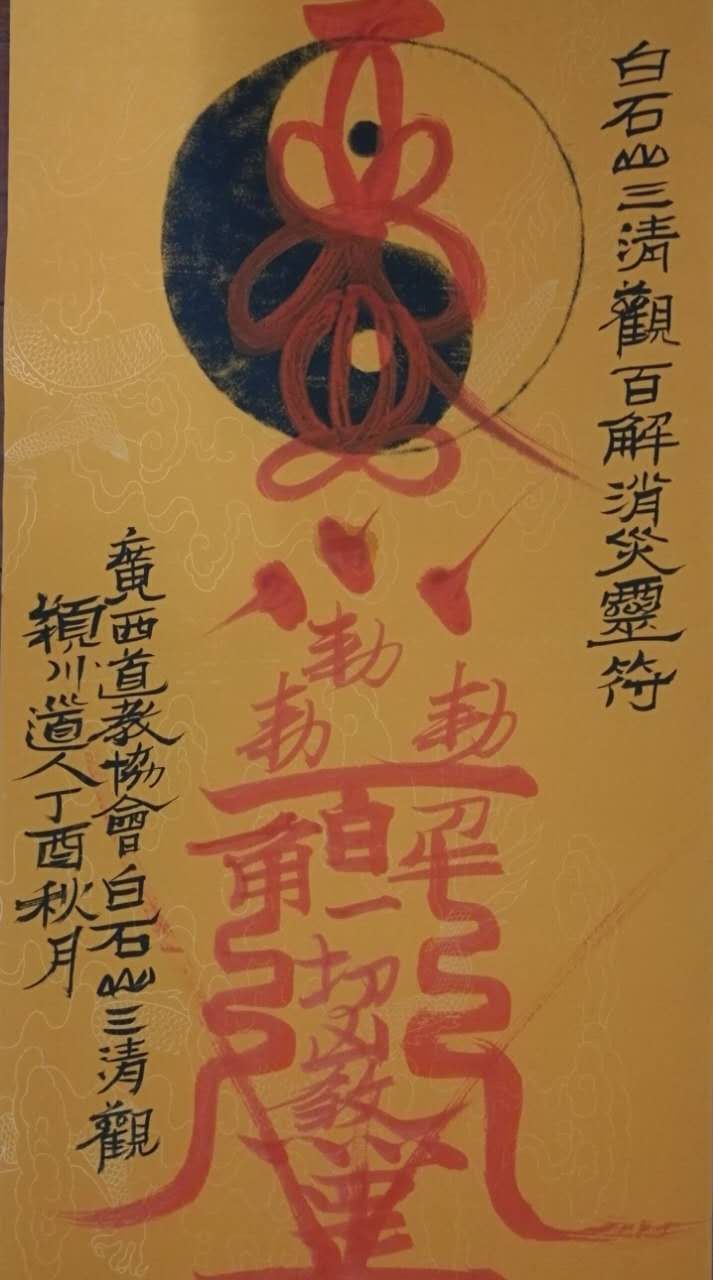 白石山三清觀百解消災靈符
勅
勅 勅
百
解
一
切
凶
煞
廣西道教協會白石山三清觀
穎川道人丁酉秋月